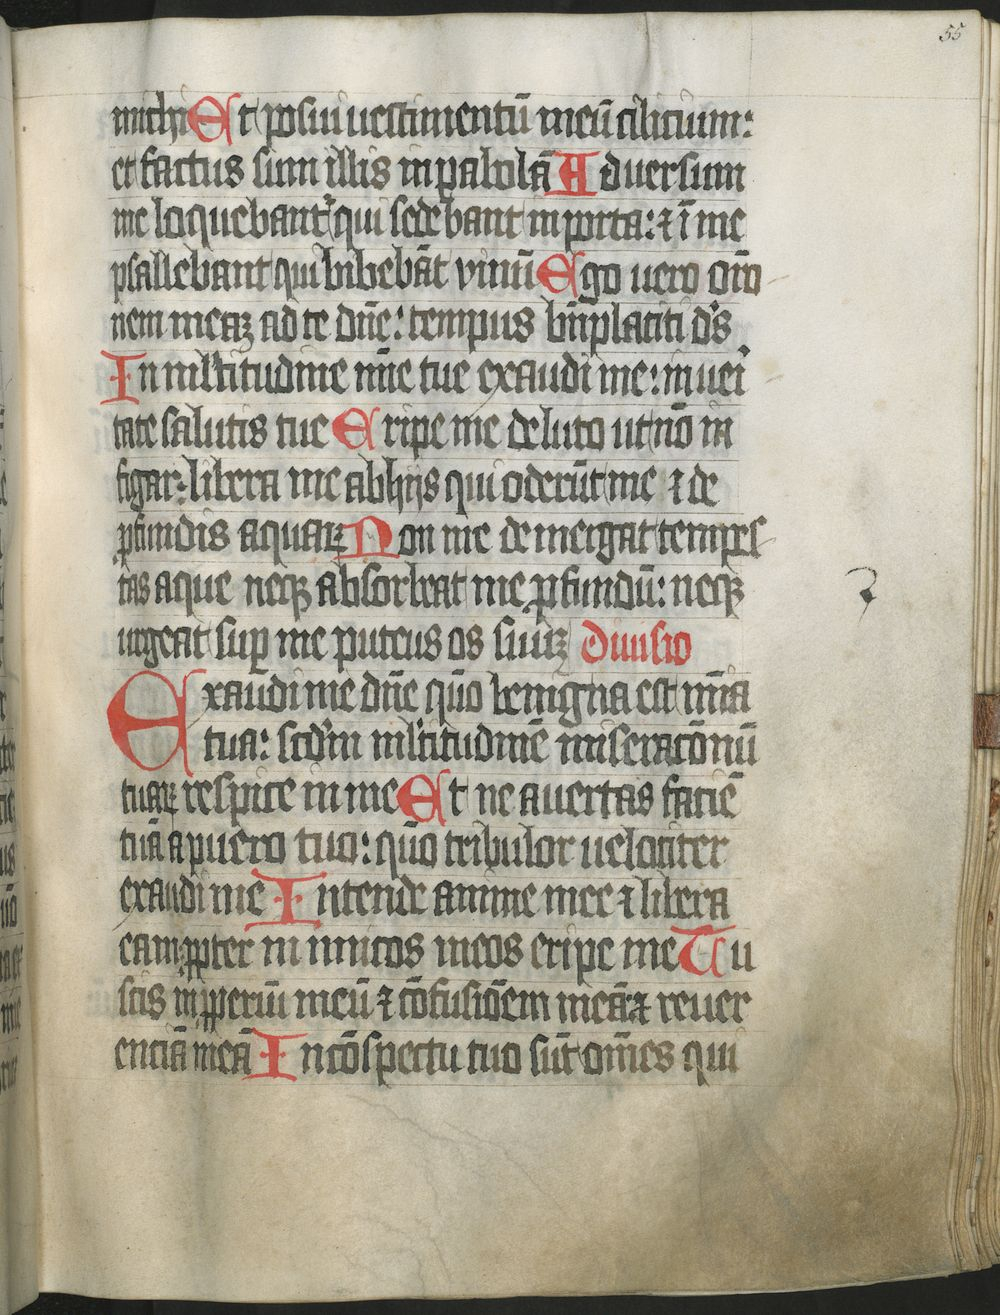 55
michi Et posui uestimentū meū cilicium:
et factus sum illis in pabolā Aduersum
me loquebant᷑ qui sedebant in porta: ⁊ ī me
psallebant qui bibebāt vinū Ego uero orō
nem meaꝫ ad te dn̄e: tempus bn̄placiti ds̄
In ml̓titudine mīe tue exaudi me: in ueri
tate salutis tue Eripe me de luto ut nō in
figar: libera me ab hijs qui oderūt me ⁊ de
ꝓfundis aquaꝝ Non me demergat tempes
tas aque neqꝫ absorbeat me ꝓfundū: neqꝫ
urgeat suꝑ me puteus os suuꝫ Diuisio
Exaudi me dn̄e qūo benigna est mīa
tua: scd̓m ml̓titudinē miseracōnū
tuaꝝ respice in me Et ne auertas faciē
tuā a puero tuo: qūo tribulor uelociter
exaudi me Intende anime mee ⁊ libera
eam: ꝓpter inimicos meos eripe me Tu
scis inꝓperiū meū ⁊ cōfusiōem meā ⁊ reuer
enciā meā In cōspectu tuo sūt om̄es qui